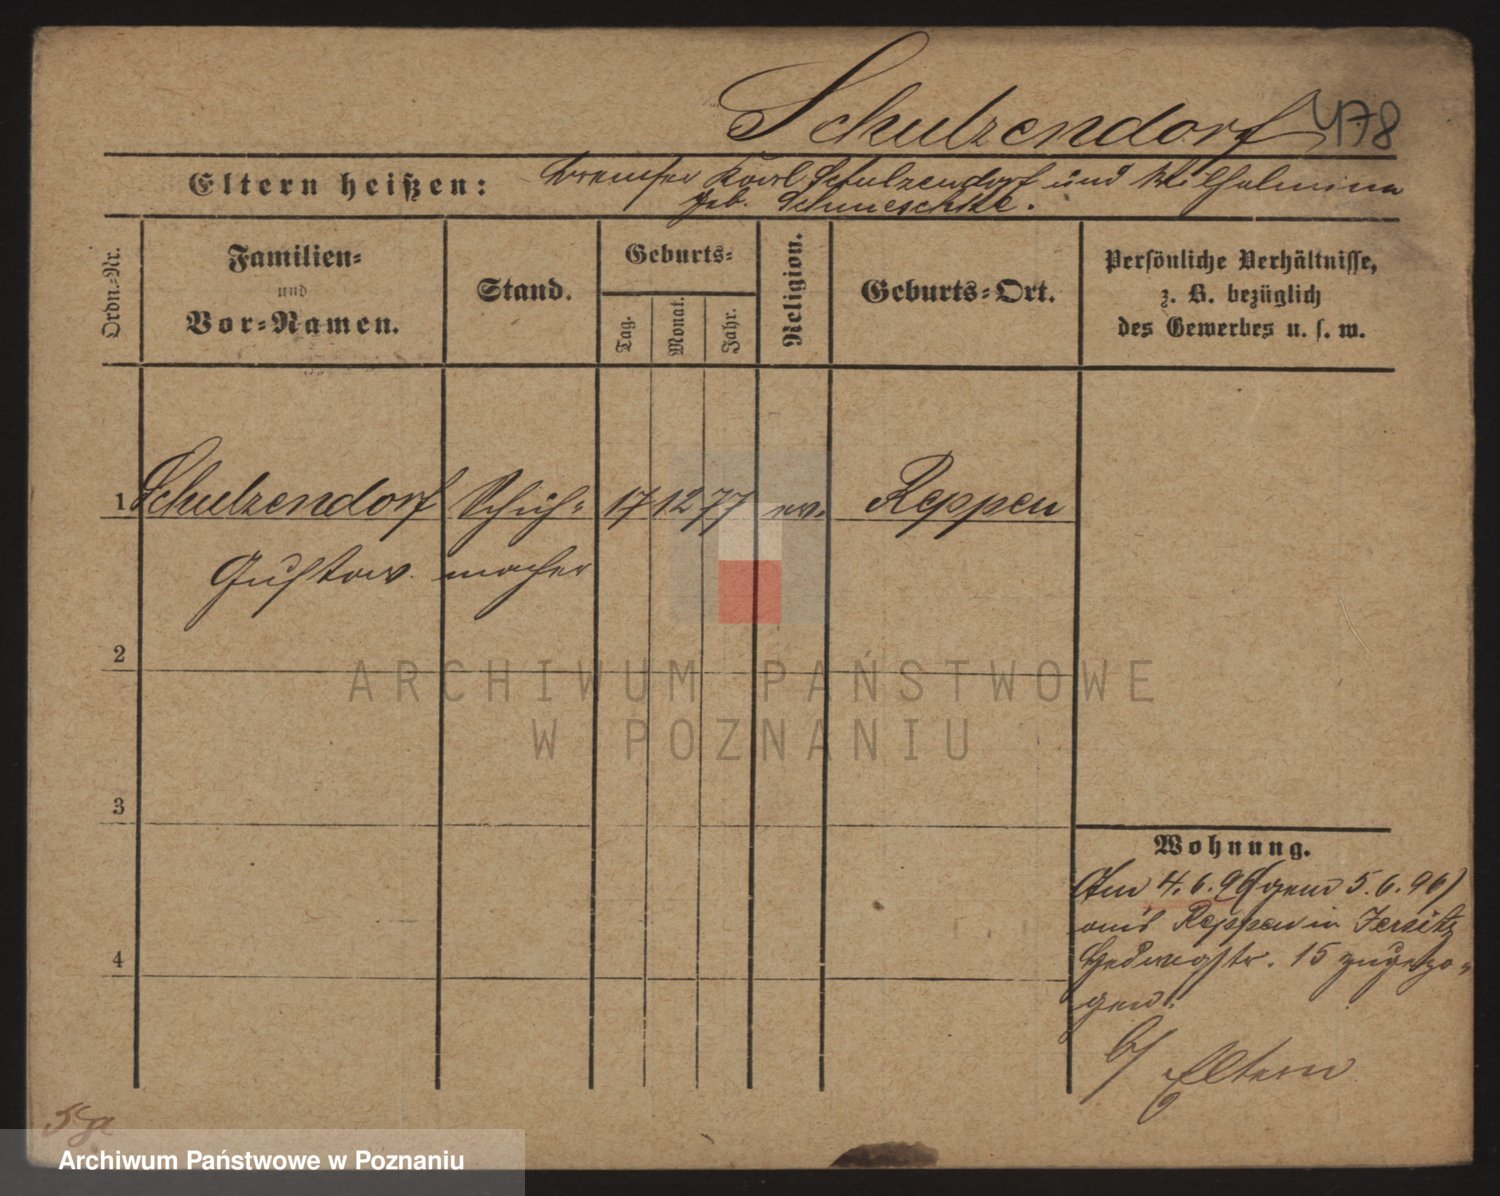 Schulzendorf 478
Eltern heißen: Bremser Karl Schulzendorf und Wilhelmina
geb. Schmeschke.
Ordn.-Nr.
Familien-
und
Vor-Namen.
Stand.
Geburts-
Tag.
Monat.
Jahr.
Religion.
Geburts-Ort.
Persönliche Verhältnisse,
z. B. bezüglich
des Gewerbes u. s. w.
1 Schulzendorf Schuh- 17 12 77 ev. Reppen
Gustav. macher
2
ARCHIWUM PAŃSTWOWE
W POZNANIU
3
Wohnung.
Am 4.6.96 (gem 5.6.96)
aus Reppen in Jersitz
Hedwigstr. 15 zugezo-
gen.
b/ Eltern
4
Archiwum Państwowe w Poznaniu